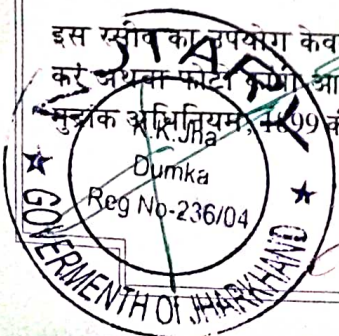 इस रसीद का उपयोग केव
करें अथवा फोटो कॉपी आ
मुद्रांक अधिनियम, 1899 क
NOTARY
K.K.Jha
Dumka
Reg No-236/04
GOVERMENTH Of JHARKHAND